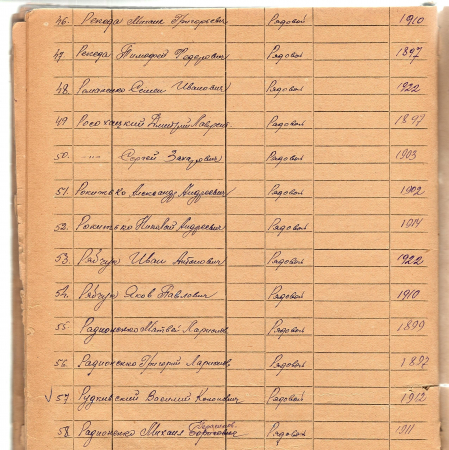 46. Репеда Михаил Григорьевич Рядовой 1910
47. Репеда Тимофей Федорович Рядовой 1897
48. Романенко Семен Иванович Рядовой 1922
49. Росохацкий Дмитрий Лаврент. Рядовой 1897
50. -"- Сергей Захарович Рядовой 1903
51. Рокитько Александр Андреевич Рядовой 1902
52. Рокитько Николай Андреевич Рядовой 1914
53. Рябчук Иван Антонович Рядовой 1922
54. Рябчук Яков Павлович Рядовой 1910
55. Радионенко Матвей Рядовой 1899
56. Радионенко Григорий Рядовой 1897
√ 57. Рудкивский Василий Кононович Рядовой 1912
58. Радионенко Михаил Рядовой 1911